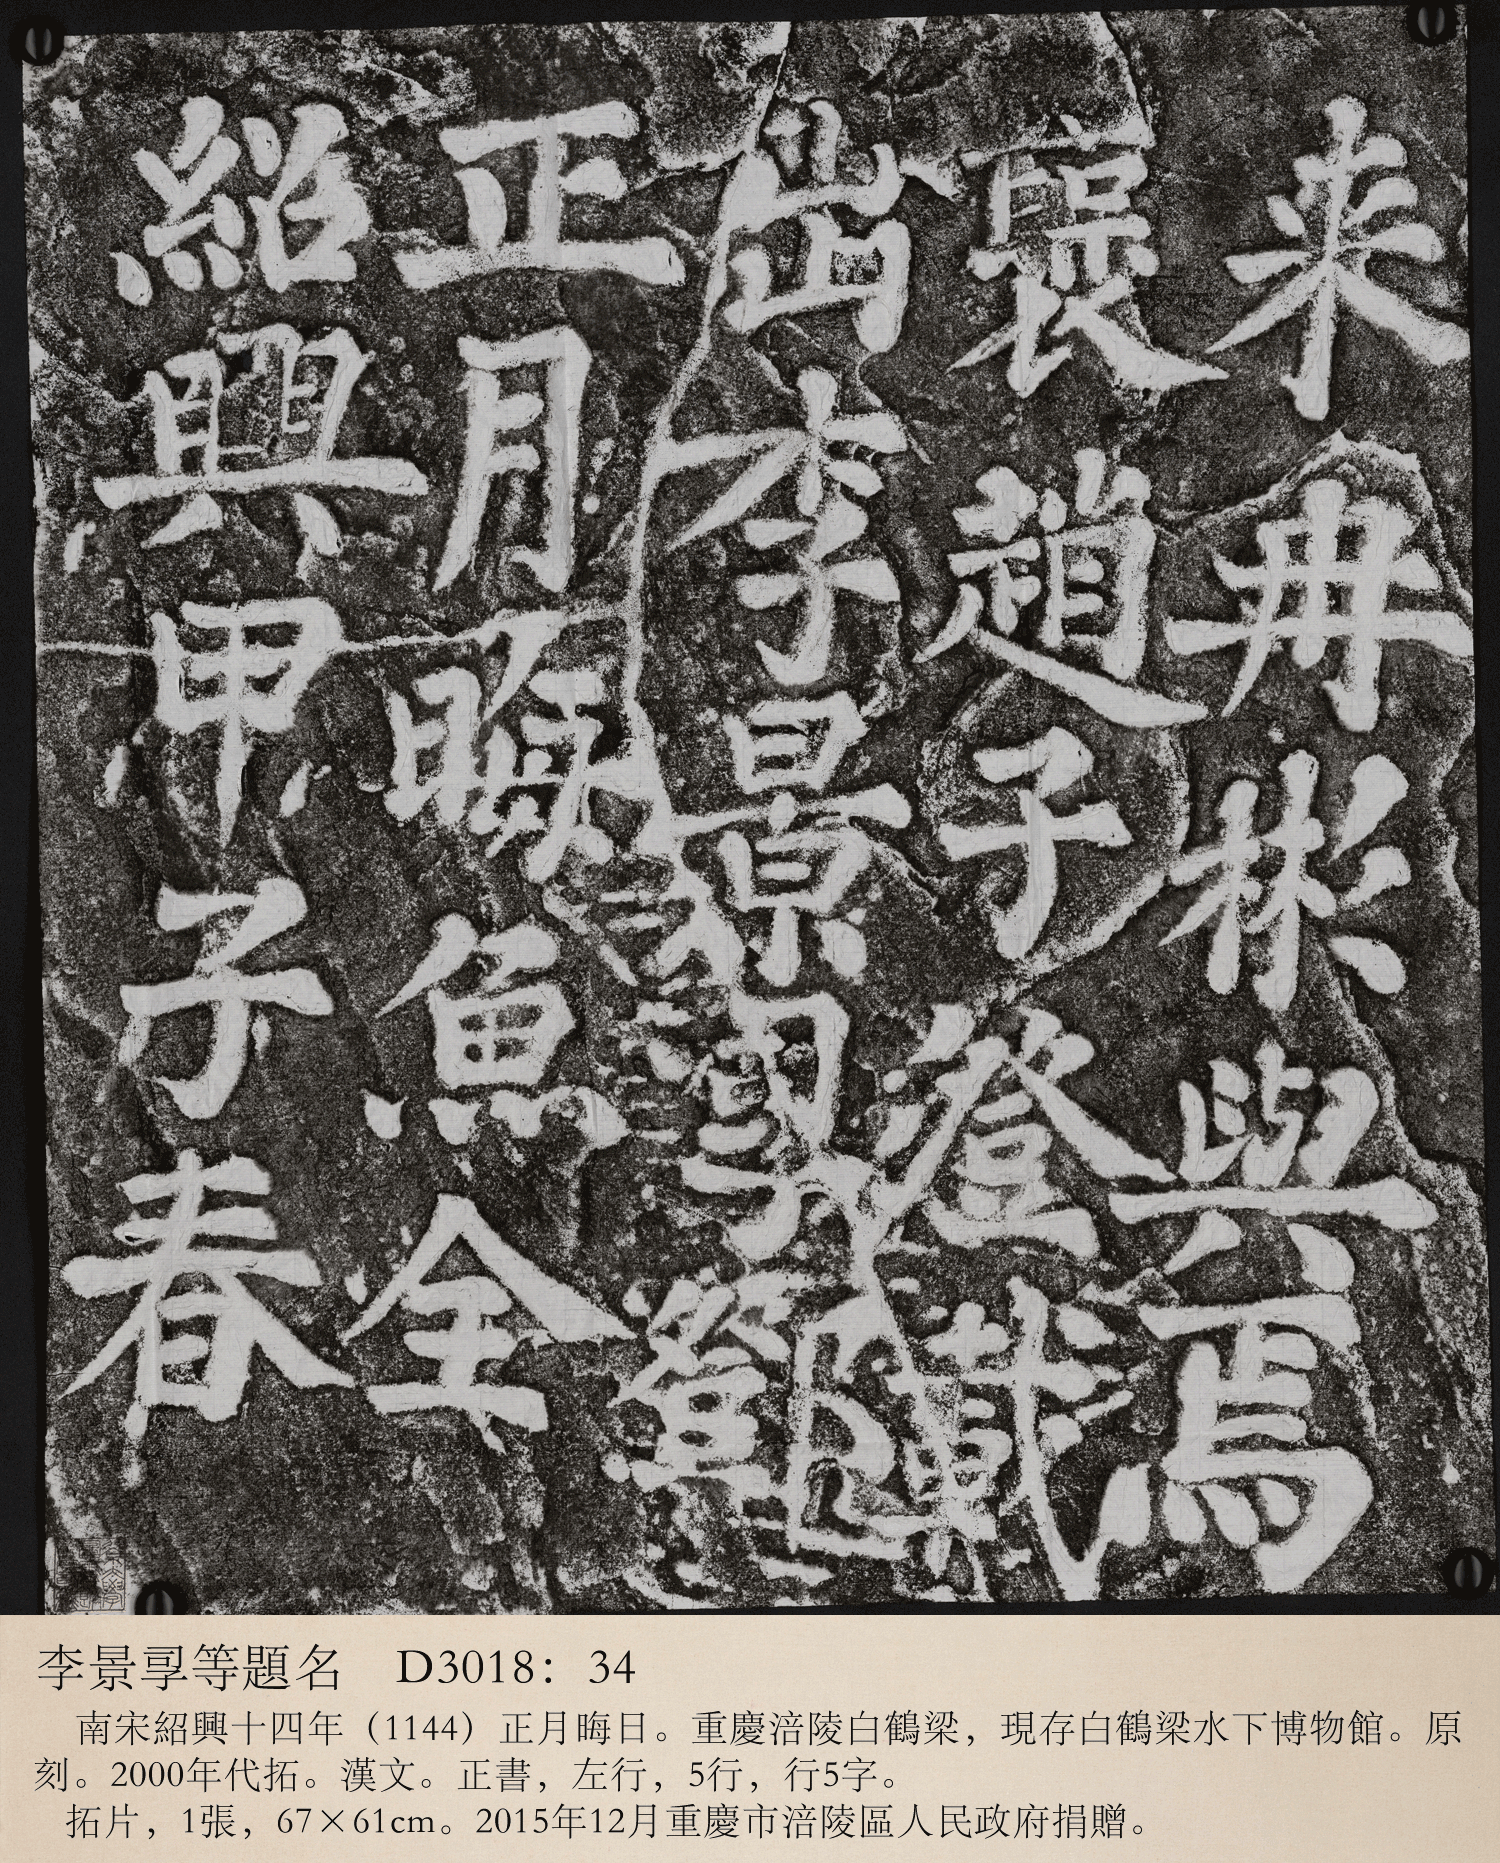 紹興甲子春
正月晦魚全
出李景孠鄧
褒趙子澄載
来冉彬與焉
李景孠等題名 D3018：34
南宋紹興十四年（1144）正月晦日。重慶涪陵白鶴梁，現存白鶴梁水下博物館。原
刻。2000年代拓。漢文。正書，左行，5行，行5字。
拓片，1張，67×61cm。2015年12月重慶市涪陵區人民政府捐贈。